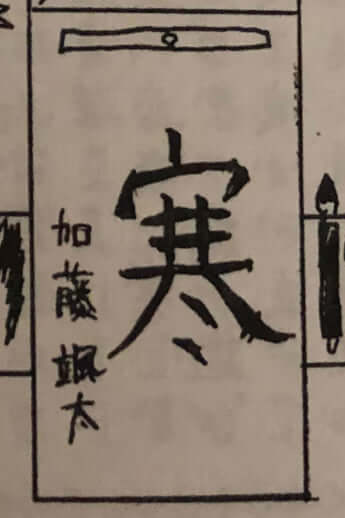 寒
加藤颯太